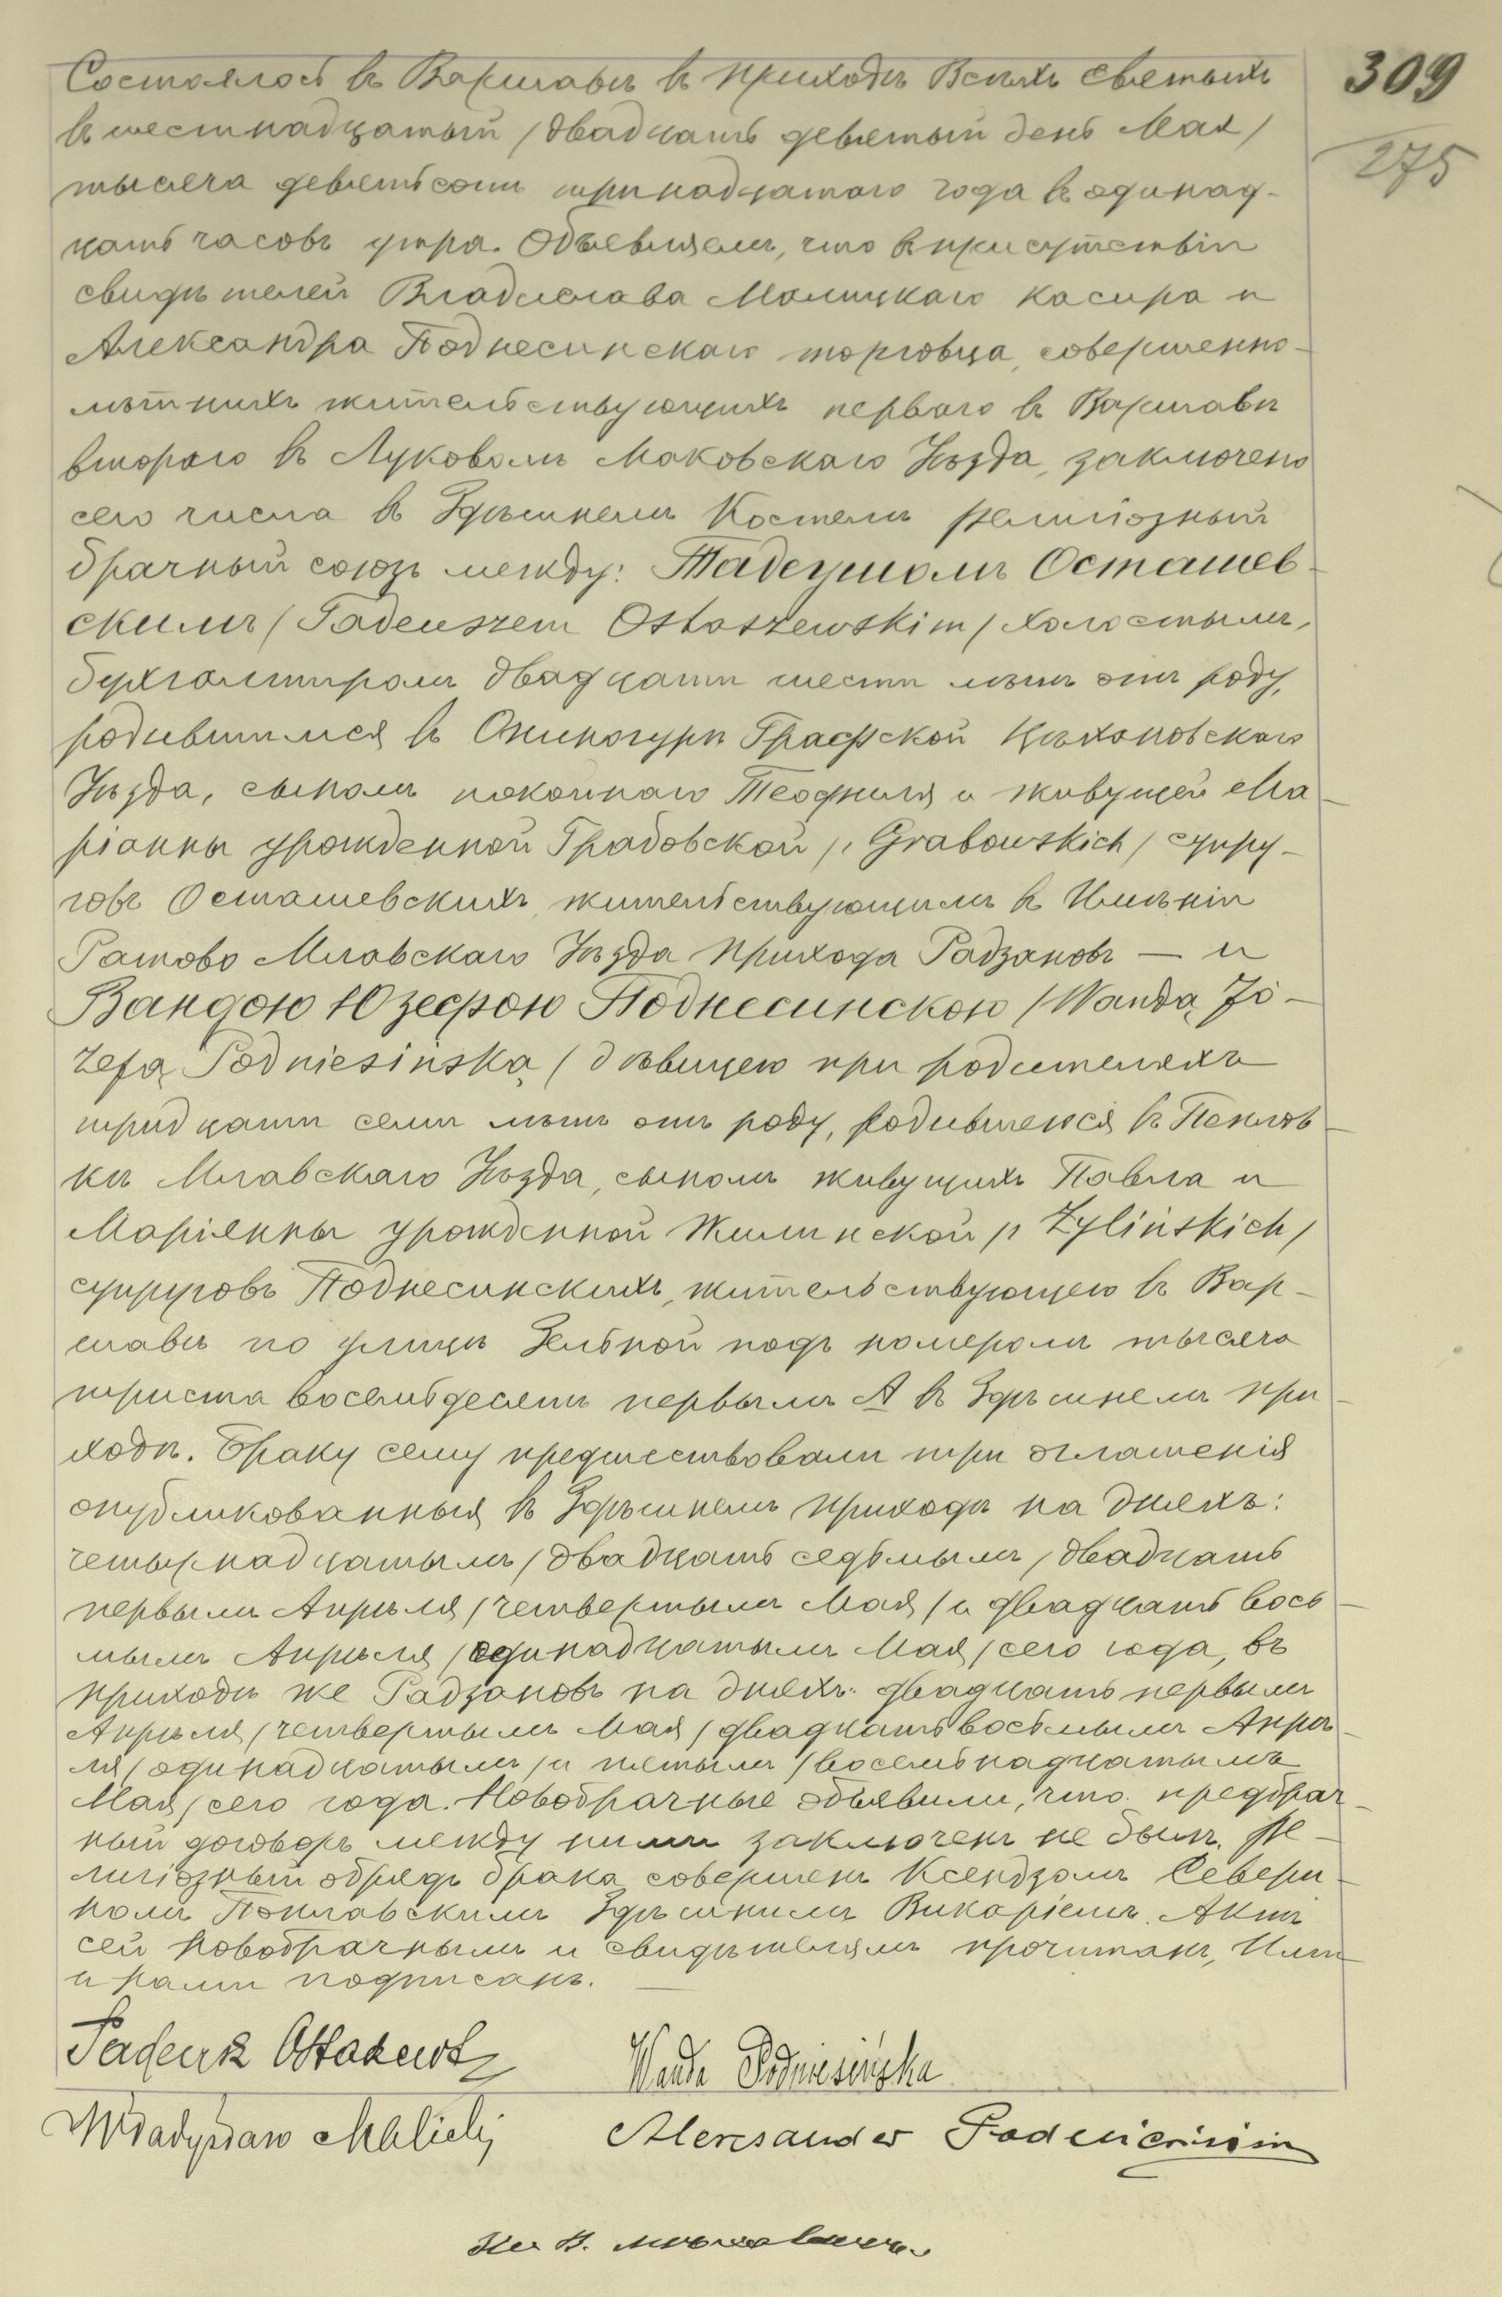 Состоялось въ Варшавѣ въ приходѣ Всѣхъ Святыхъ
309
въ шестнадцатый /двадцать девятый день Мая/
275
тысяча девятьсотъ тринадцатаго года въ одинад-
цать часовъ утра. Объявляемъ, что въ присутствіи
свидѣтелей Владислава Малицкаго касира и
Александра Поднесинскаго торговца, совершенно-
лѣтнихъ жительствующихъ перваго въ Варшавѣ
втораго въ Луковомъ Маковскаго Уѣзда, заключено
сего числа въ Здѣшнемъ Костелѣ религіозный
брачный союзъ между: Тадеушомъ Осташев-
скимъ /Tadeuszem Ostaszewskim/ холостымъ,
бухгалтеромъ двадцати шести лѣтъ отъ роду,
родившимся въ Опиногурѣ Графской Цѣхановскаго
Уѣзда, сыномъ покойнаго Теофиля и живущей Ма-
ріанны урожденной Грабовской /z Grabowskich/ супру-
говъ Осташевскихъ, жительствующимъ въ Имѣніи
Ратово Млавскаго Уѣзда прихода Радзановъ — и
Вандою Юзефою Поднесинскою /Wandą Jó-
zefą Podniesińską/ дѣвицею при родителяхъ
тридцати семи лѣтъ отъ роду, родившеюся въ
кѣ Млавскаго Уѣзда, сыномъ живущихъ Павла и
Маріянны урожденной Жилинской /z Żylińskich/
супруговъ Поднесинскихъ, жительствующею въ Вар-
шавѣ по улицѣ Зельной подъ номеромъ тысяча
триста восемьдесятъ первымъ А въ Здѣшнемъ при-
ходѣ. Браку сему предшествовали три оглашенія
опубликованныя въ Здѣшнемъ приходѣ на дняхъ:
четырнадцатымъ /двадцать седьмымъ/ двадцать
первымъ Апрѣля /четвертымъ Мая/ и двадцать вось-
мымъ Апрѣля /одинадцатымъ Мая/ сего года, въ
приходѣ же Радзановъ на дняхъ: двадцать первымъ
Апрѣля /четвертымъ Мая/ двадцать восьмымъ Апрѣ-
ля /одинадцатымъ/ и пятымъ /восемьнадцатымъ
Мая/ сего года. Новобрачные объявили, что предбрач-
ный договоръ между ними заключенъ не былъ. Ре-
лигіозный обрядъ брака совершенъ Ксендзомъ Севери-
номъ Поплавскимъ Здѣшнимъ Викаріемъ. Актъ
сей Новобрачнымъ и свидѣтелямъ прочитанъ, Ими
и нами подписанъ. —
Tadeusz Ostaszewski
Wanda Podniesińska
Władysław Malicki
Alexsander